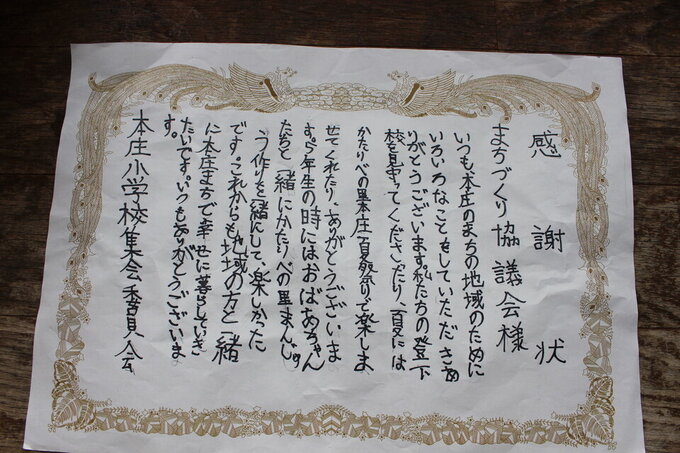 感謝状
まちづくり協議会様
いつも本庄のまちの地域のために
いろいろなことをしていただきあ
りがとうございます。私たちの登下
校を見守ってくださったり、夏には
かたりべの里本庄夏祭りで楽しま
せてくれたり、ありがとうございま
す。5年生の時にはおばあちゃん
たちと一緒にかたりべの里まんじゅ
う作りを一緒にして、楽しかった
です。これからも地域の方と一緒
に本庄まちで幸せに暮らしていき
たいです。いつもありがとうございま
す。
本庄小学校集会委員会